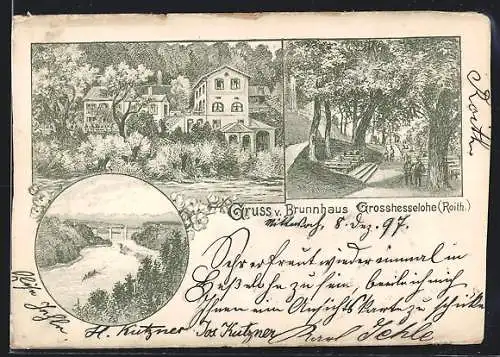 Gruss v. Brunnhaus Grosshesselohe (Roith.)
Mittwoch, 8. Dez. 97.
Sehr erfreut wieder einmal in
Heßelohe zu sein, beeile ich mich
Ihnen eine Ansichtskarte zu schicken
Karl Jehle
Jos Kutzner
H. Kutzner
Roith